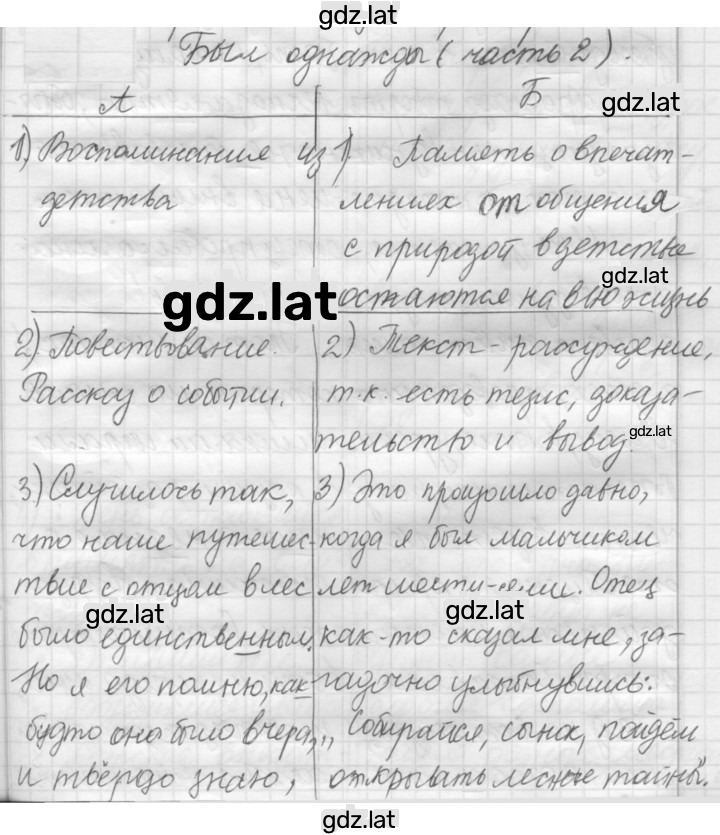 gdz.lat
Был однажды (часть 2).
А
Б
gdz.lat
1) Воспоминания из
детства
1) Память о впечат-
лениях от общения
с природой в детстве
gdz.lat
остаются на всю жизнь
gdz.lat
2) Повествование.
Рассказ о событии.
2) Текст - рассуждение,
т.к. есть тезис, доказа-
тельство и вывод.
gdz.lat
3) Случилось так,
что наше путешес-
твие с отцом в лес
gdz.lat
было единственным.
Но я его помню, как
будто оно было вчера,
и твёрдо знаю,
3) Это произошло давно,
когда я был мальчиком
лет шести-семи. Отец
gdz.lat
как-то сказал мне, за-
гадочно улыбнувшись:
„Собирайся, сынок, пойдём
открывать лесные тайны".
gdz.lat